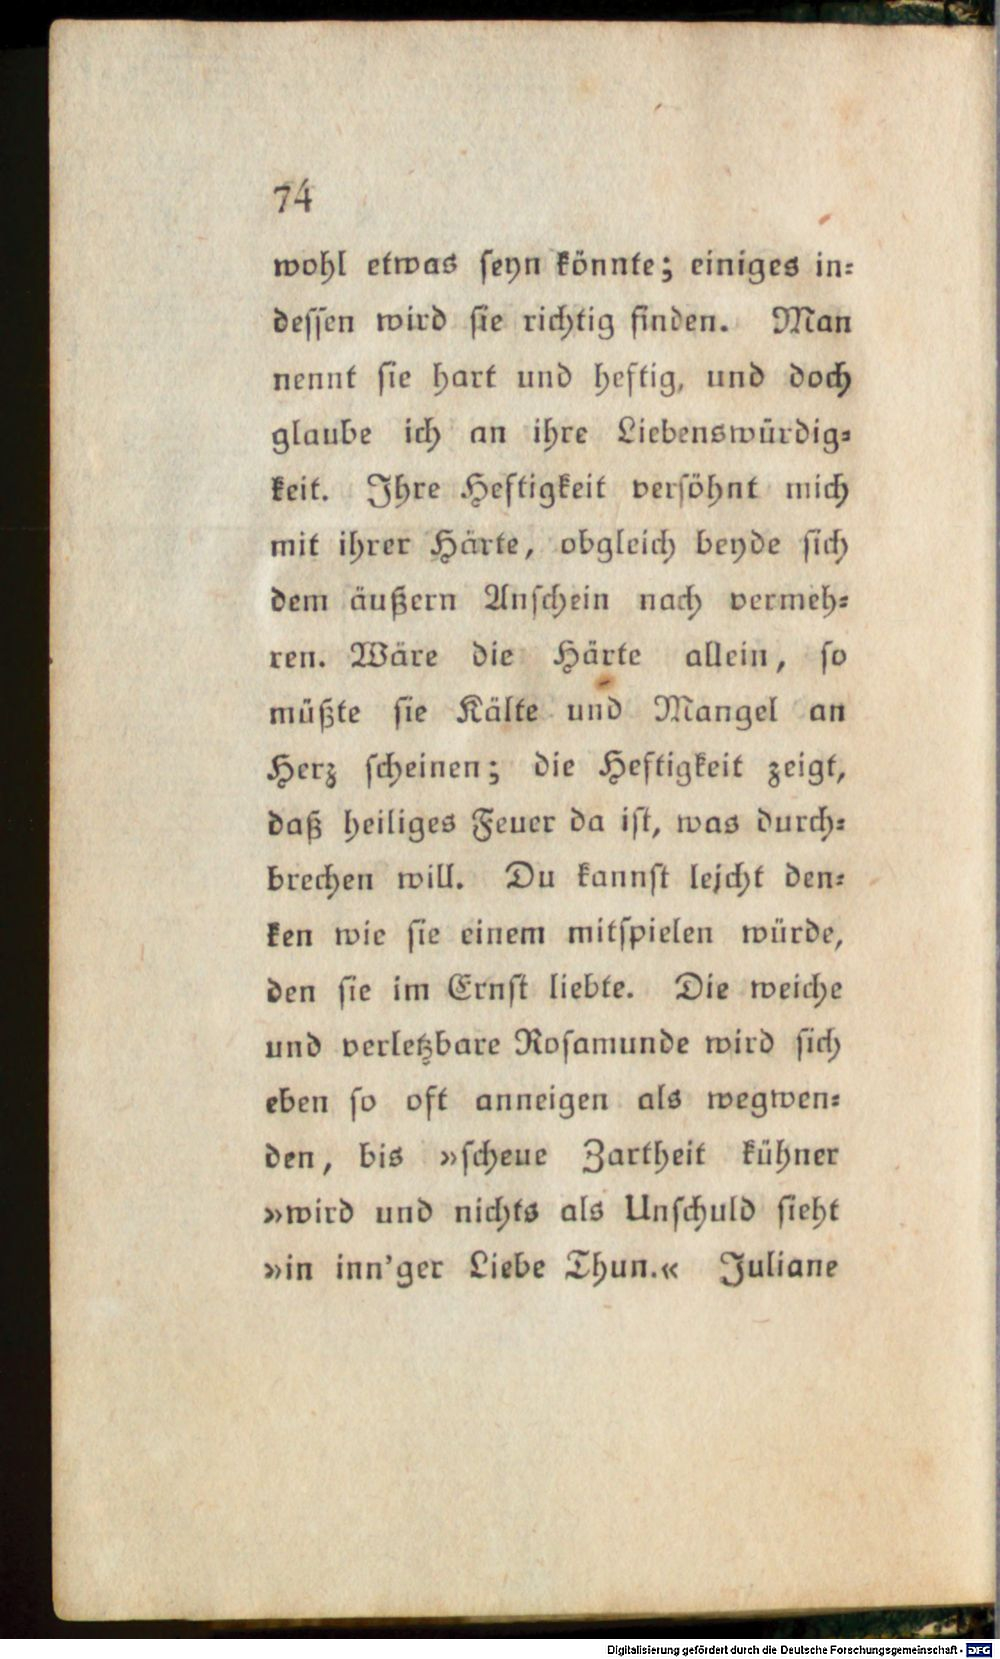 74
wohl etwas seyn könnte; einiges in-
dessen wird sie richtig finden. Man
nennt sie hart und heftig, und doch
glaube ich an ihre Liebenswürdig-
keit. Ihre Heftigkeit versöhnt mich
mit ihrer Härte, obgleich beyde sich
dem äußern Anschein nach vermeh-
ren. Wäre die Härte allein, so
müßte sie Kälte und Mangel an
Herz scheinen; die Heftigkeit zeigt,
daß heiliges Feuer da ist, was durch-
brechen will. Du kannst leicht den-
ken wie sie einem mitspielen würde,
den sie im Ernst liebte. Die weiche
und verletzbare Rosamunde wird sich
eben so oft anneigen als wegwen-
den, bis »scheue Zartheit kühner
»wird und nichts als Unschuld sieht
»in inn'ger Liebe Thun.« Juliane
Digitalisierung gefördert durch die Deutsche Forschungsgemeinschaft - DFG